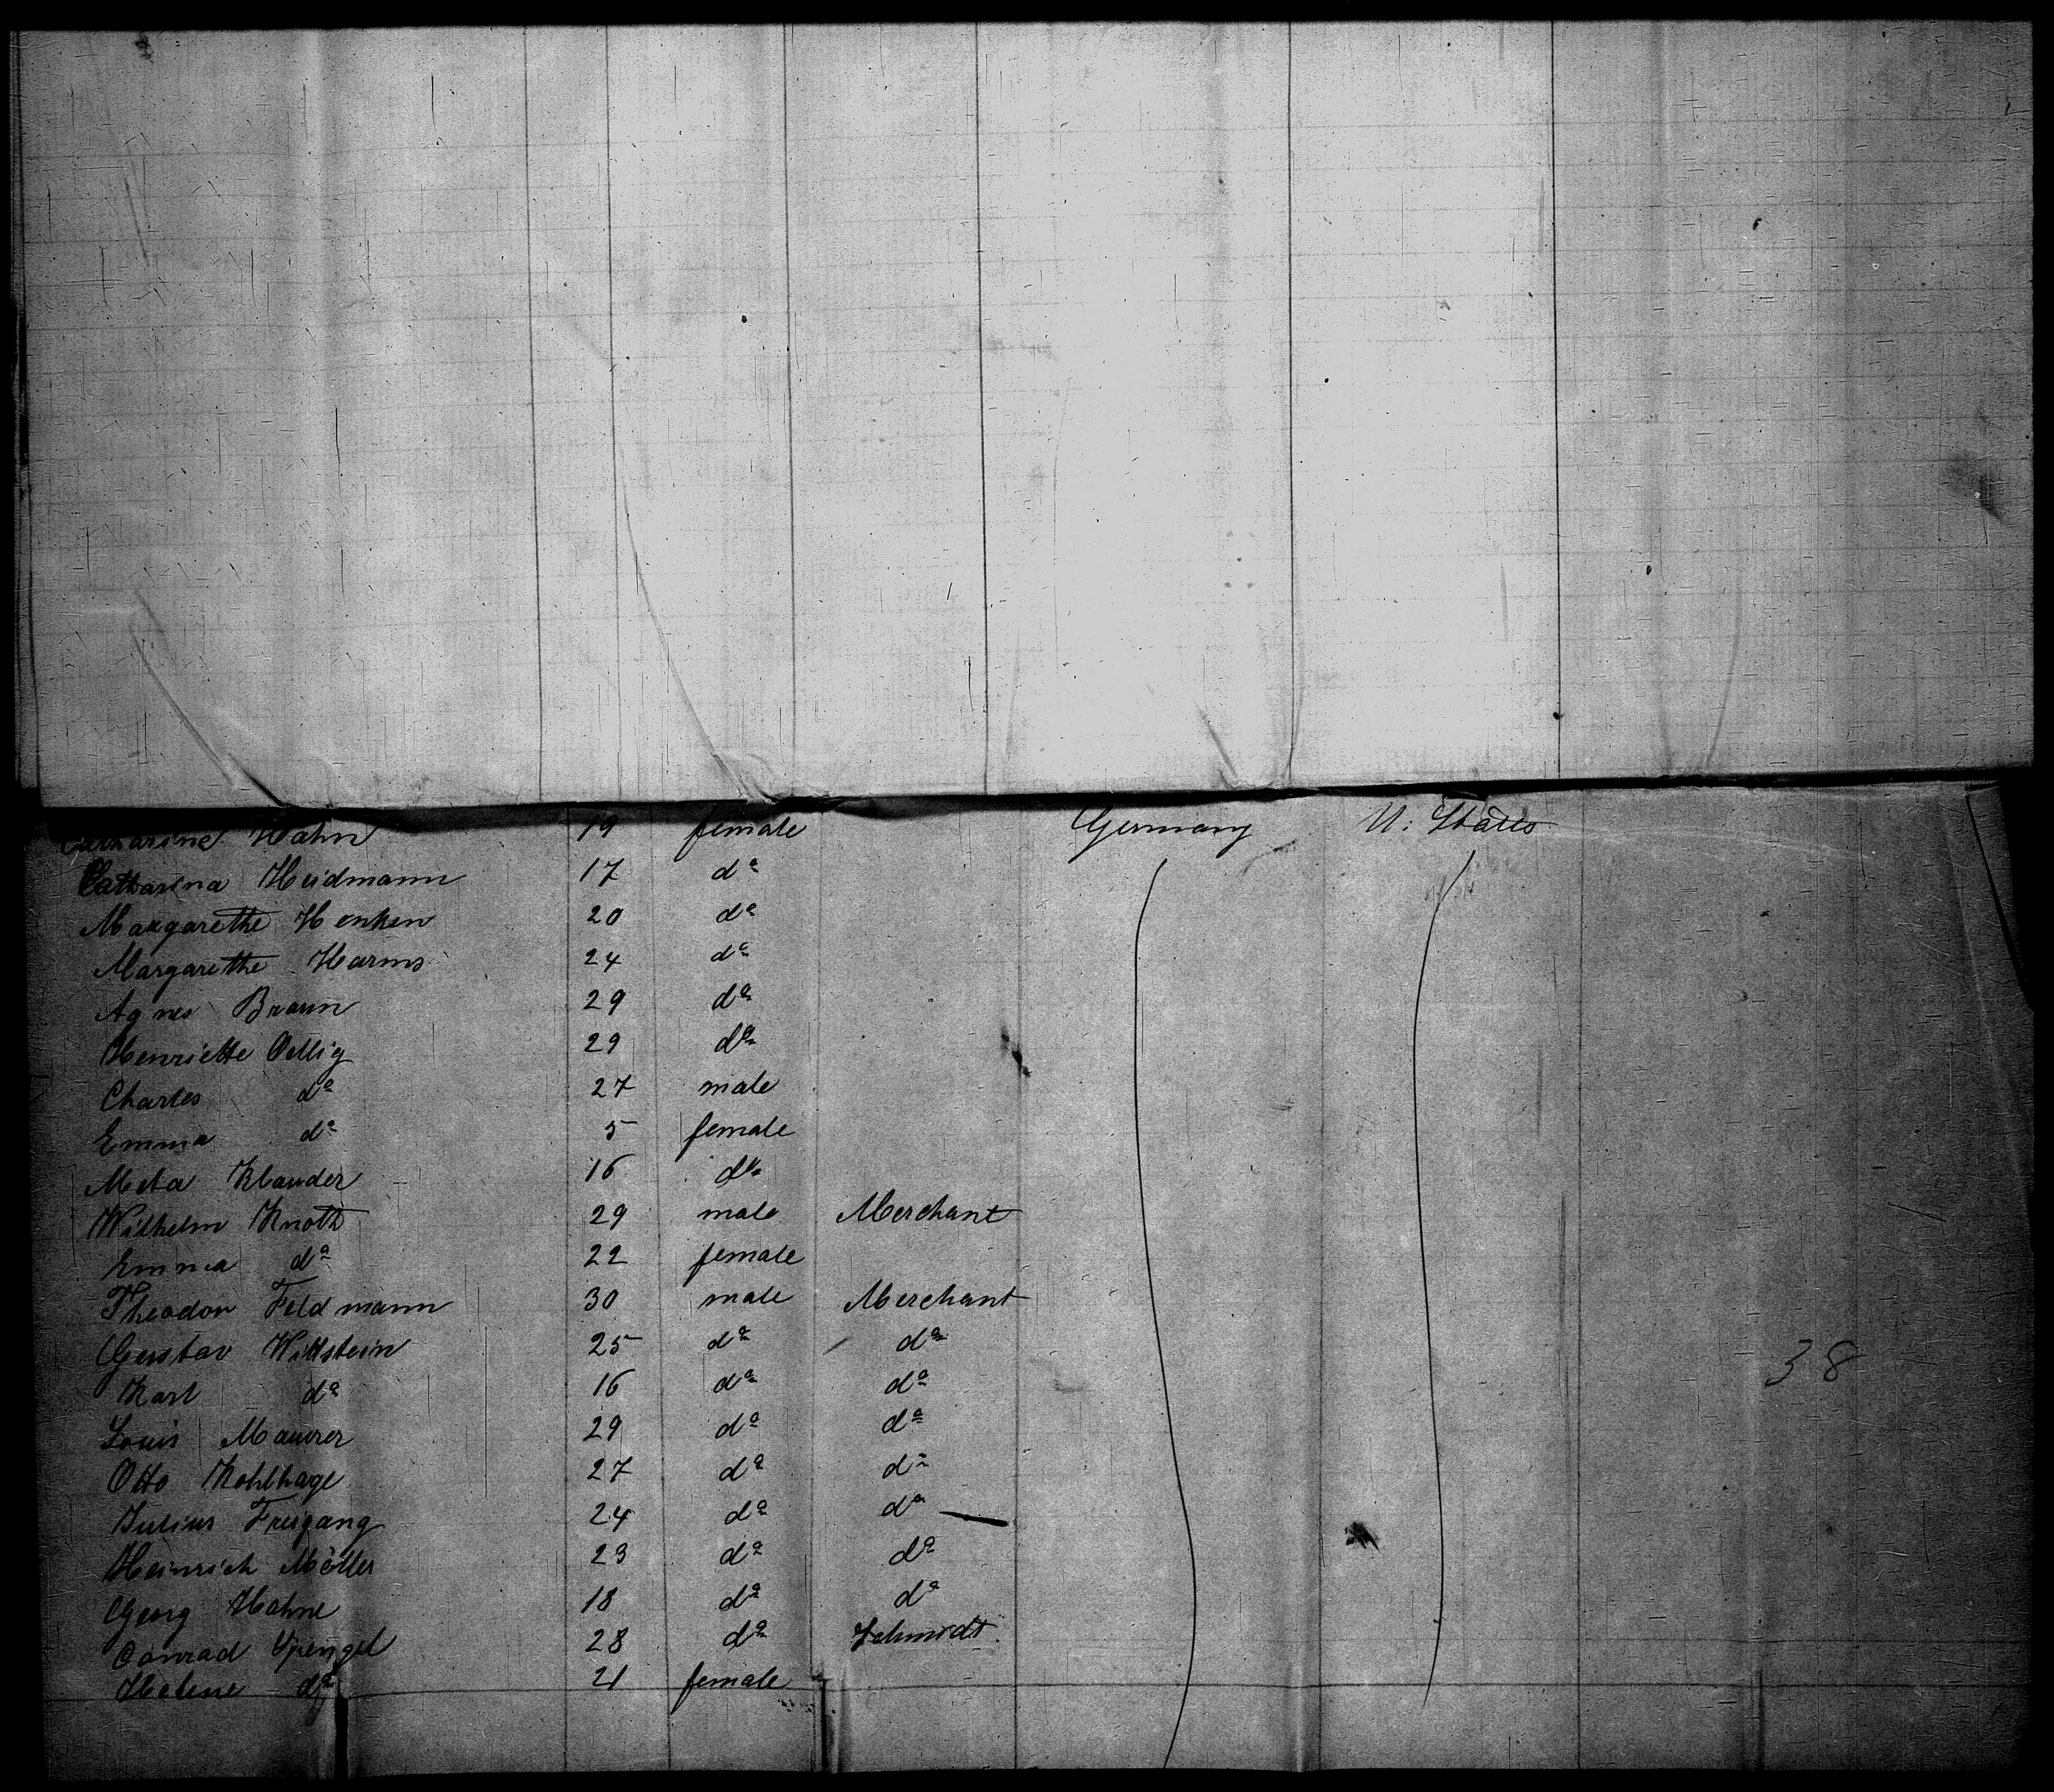 Catharine Hahn 19 female Germany U. States
Catharina Heidmann 17 do
Margarethe Henken 20 do
Margarethe Harms 24 do
Agnes Braun 29 do
Henriette Oellig 29 do
Charles do 27 male
Emma do 5 female
Meta Klauder 16 do
Wilhelm Knoth 29 male Merchant
Emma do 22 female
Theodor Feldmann 30 male Merchant
Gustav Wittstein 25 do do
Karl do 16 do do
Louis Maurer 29 do do
Otto Kohlhage 27 do do
Julius Freigang 24 do do
Heinrich Möller 23 do do
Georg Hahne 18 do do
Conrad Spengel 28 do Schmidt
Helene do 21 female
38